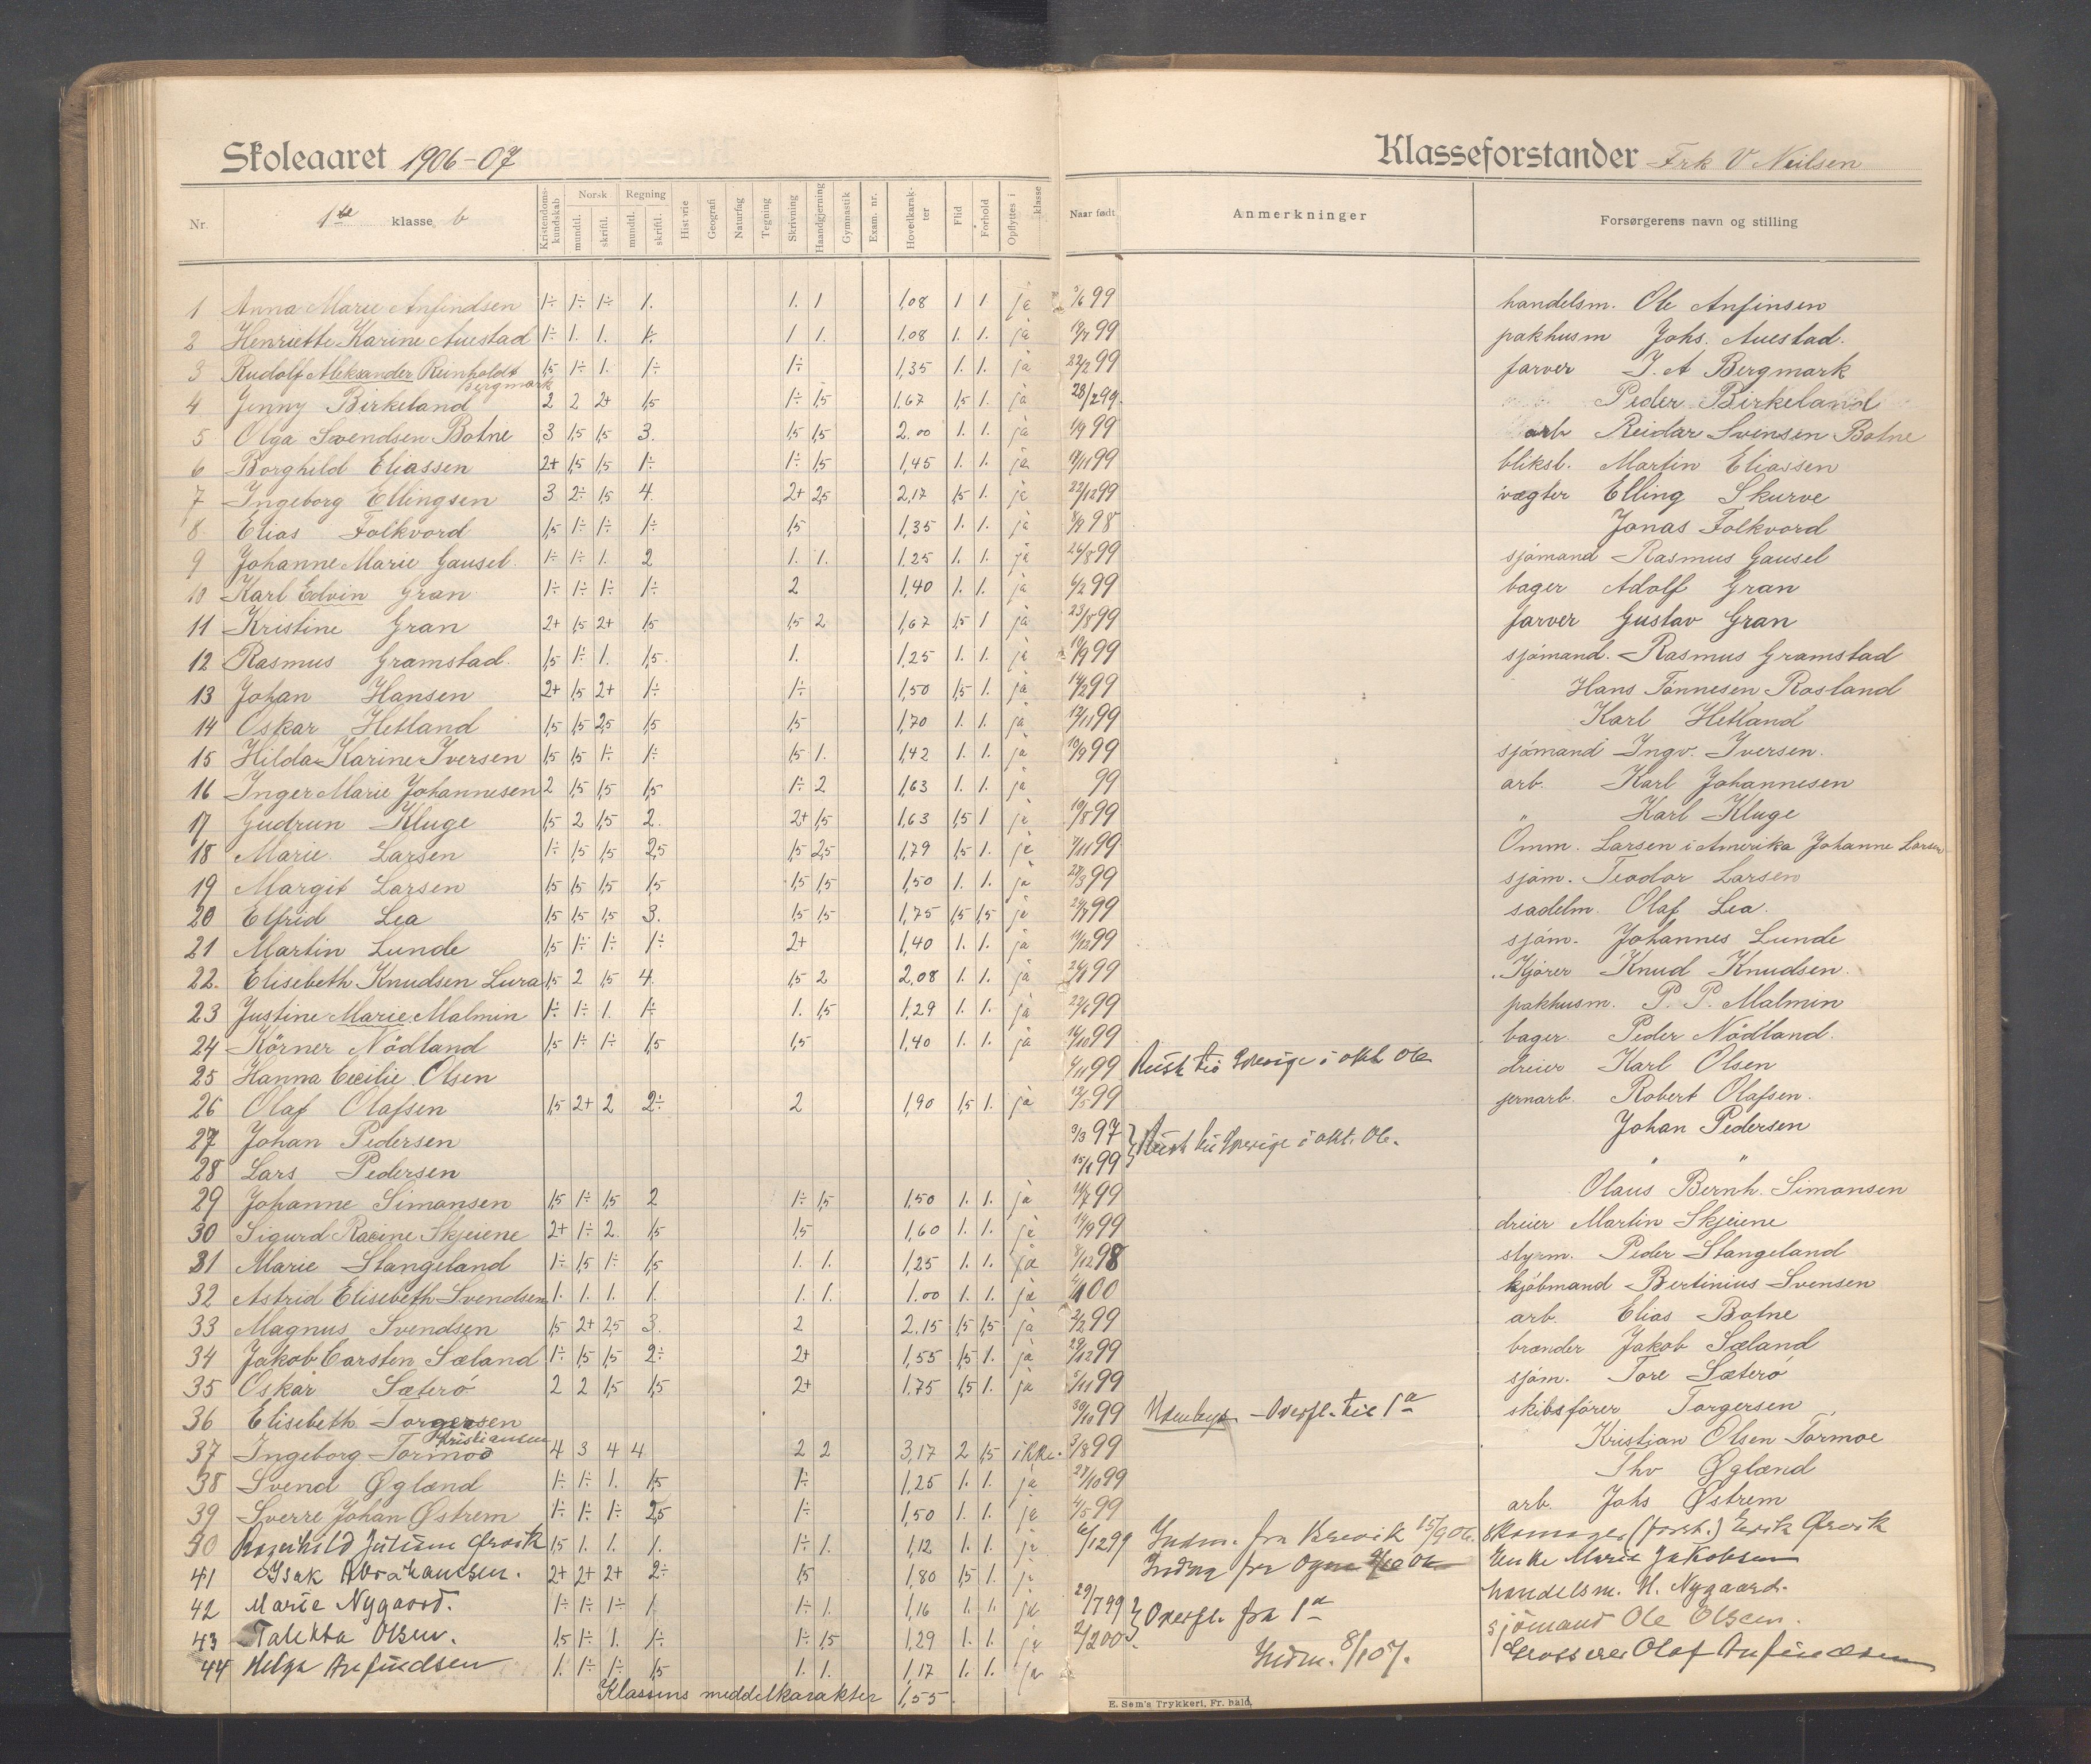 Skoleaaret 1906-07
Klasseforstander Frk V Neilsen
Nr. 1ste klasse b Kristendoms-kundskab Norsk mundtl. skriftl. Regning mundtl. skriftl. Historie Geografi Naturfag Tegning Skrivning Haandgjerning Gymnastik Exam. nr. Hovedkarakter Flid Forhold Opflyttes i klasse Naar født Anmerkninger Forsørgerens navn og stilling
1 Anna Marie Anfindsen 1÷ 1÷ 1÷ 1. 1. 1 1,08 1 1 ja 99 handelsm. Ole Anfinsen
2 Henriette Karine Auestad 1÷ 1. 1. 1÷ 1 1. 1,08 1. 1. ja 99 pakhusm Johs. Auestad.
3 Rudolf Aleksander Reinholdt Bergmark 1,5 1÷ 1. 1÷ 1÷ 1,35 1. 1. ja 22/2 99 farver J. A Bergmark
4 Jenny Birkeland 2 2 2+ 1,5 1÷ 1,5 1.67 1,5 1. ja 28/2 99. Peder Birkeland
5 Olga Svendsen Botne 3 1,5 1,5 3. 1,5 1,5 2.00 1. 1. ja 1/9 99 arb Reidar Svensen Botne
6 Borghild Eliassen 2+ 1,5 1,5 1÷ 1÷ 1,5 1,45 1. 1. ja 99 bliksl. Martin Eliassen
7 Ingeborg Ellingsen 3 2÷ 1,5 4. 2+ 2,5 2,17 1,5 1. ja 22/12 99 vægter Elling Skurve
8 Elias Folkvord 1,5 1÷ 1÷ 1÷ 1,5 1,35 1. 1. ja 8/9 98 Jonas Folkvord
9 Johanne Marie Gausel 1÷ 1÷ 1. 2 1. 1. 1.25 1. 1. ja 26/8 99 sjömand Rasmus Gausel
10 Karl Edvin Gran 1÷ 1÷ 1÷ 1÷ 2 1,40 1. 1. ja 6/2 99 bager Adolf Gran
11 Kristine Gran 2+ 1,5 2+ 1,5 1,5 2 1,67 1,5 1 ja 23/8 99 farver Gustav Gran
12 Rasmus Gramstad. 1,5 1÷ 1. 1,5. 1. 1,25 1. 1. ja 99 sjömand. Rasmus Gramstad
13 Johan Hansen 2+ 1,5 2+ 1÷ 1÷ 1,50 1,5 1. ja 14/2 99 Hans Tönnesen Rosland
14 Oskar Hetland 1,5 1,5 2,5 1,5 1,5 1,70 1. 1. ja 12/11 99 Karl Hetland
15 Hilda Karine Iversen 1,5 1,5 1÷ 1÷ 1,5 1. 1,42 1. 1. ja 10/9 99 sjömand Ingv. Iversen.
16 Inger Marie Johannesen 2 1,5 1,5 1,5 1÷ 2 1,63 1. 1. ja 99 arb. Karl Johannesen
17 Gudrun Kluge 1,5 2 1,5 2. 2+ 1,5 1,63 1,5 1 ja 10/8 99 " Karl Kluge
18 Marie Larsen 1÷ 1,5 1,5 2,5 1,5 2,5 1,79 1,5 1. ja 7/11 99. Omm. Larsen i Amerika Johanne Larsen
19 Margit Larsen 1,5 1,5 1,5 1,5 1,5 1,5 1,50 1. 1. ja 27/3 99 sjöm. Teodor Larsen
20 Elfrid Lea 1,5 1,5 1,5 3. 1,5 1,5 1,75 1,5 1,5 ja 99 sadelm. Olaf Lea.
21 Martin Lunde 1,5 1÷ 1÷ 1÷ 2+ 1,40 1. 1. ja 11/12 99 sjöm. Johannes Lunde
22. Elisebeth Knudsen Lura 1,5 2 1,5 4. 1,5 2 2,08 1. 1. ja 99 Kjörer Knud Knudsen.
23 Justine Marie Malmin 1÷ 1÷ 1. 1÷ 1. 1,5 1,29 1. 1. ja 22/6 99 pakhusm. P. P. Malmin
24 Körner Nödland 1,5 1÷ 1÷ 1,5 1,5 1,40 1. 1. ja 16/10 99 bager Peder Nödland.
25 Hanna Cecilie Olsen 99 Reist til Sverige i okt 06 dreier Karl Olsen
26 Olaf Olafsen 1,5 2+ 2 2÷ 2 1,90 1,5 1. ja 12/5 99 jernarb. Robert Olafsen.
27 Johan Pedersen 3/3 97 } Reist til Sverige i okt. 06. Johan Pedersen
28 Lars Pedersen 99 " "
29 Johanne Simonsen 1,5 1÷ 1,5 2 1÷ 1,5 1,50 1. 1. ja 99 Olaus Bernh. Simonsen
30 Sigurd Racine Skjeiene 2+ 1÷ 2. 1,5 1,5 1,60 1. 1. ja 14/9 99 dreier Martin Skjeiene
31 Marie Stangeland 1÷ 1,5 1÷ 1,5 1. 1. 1,25 1. 1. ja 8/12 98 styrm. Peder Stangeland
32 Astrid Elisebeth Svendsen 1. 1. 1. 1. 1. 1. 1.00 1. 1. ja 00 kjöbmand Bertinius Svensen
33 Magnus Svendsen 1,5 2+ 2,5 3. 2 2.15 1,5 1,5 ja 2/2 99 arb. Elias Botne
34 Jakob Carsten Sæland 1÷ 1,5 1,5 2÷ 2+ 1,55 1,5 1. ja 29/12 99 brænder Jakob Sæland
35 Oskar Sæterö 2 2 1,5 1,5 2+ 1.75 1,5 1. ja 5/11 99 sjöm. Tore Sæterö
36 Elisebeth Torgersen 30/10 99 Udenbys - Overfl. til 1a skibsförer Torgersen
37 Ingeborg Kristiansen Tormod 4 3 4 4 2 2 3,17 2 1,5 ikke. 3/8 99 Kristian Olsen Tormoe
38 Svend Øglænd 1÷ 1÷ 1. 1,5 1÷ 1,25 1. 1. ja 27/10 99 Thv Øglænd
39 Sverre Johan Østrem 1÷ 1÷ 1÷ 2,5 1÷ 1,50 1. 1. ja 4/5 99 arb. Johs Østrem
Ørvik 1,5 1. 1. 1. 1÷ 1. 1,12 1. 1. ja 6/12 99 Indm. fra Brevik 15/9 06. Skomager (forst.) Erik Ørvik
41 Isak Abrahamsen. 2+ 2+ 2+ 2÷ 1,5 1,80 1,5 1. ja Indm fra Ogna 9/10 06 Enke Marie Jakobsen
42 Marie Nygaard. 1÷ 1÷ 1÷ 1 1÷ 1. 1,16 1. 1. ja 29/7 99 } Overfl. fra 1a handelsm. H. Nygaard.
43 Talette Olsen. 1,5 1÷ 1. 1÷ 1÷ 1,5 1,29 1. 1. ja 2/2 00 sjömand Ole Olsen.
44 Helga Anfindsen 1. 1÷ 1÷ 1,5 1. 1. 1,17 1. 1. ja Indm. 8/1 07. Grosserer Olaf Anfindsen
Klassens meddelkarakter 1,55.
E. Søm's Trykkeri, Fr. hald.